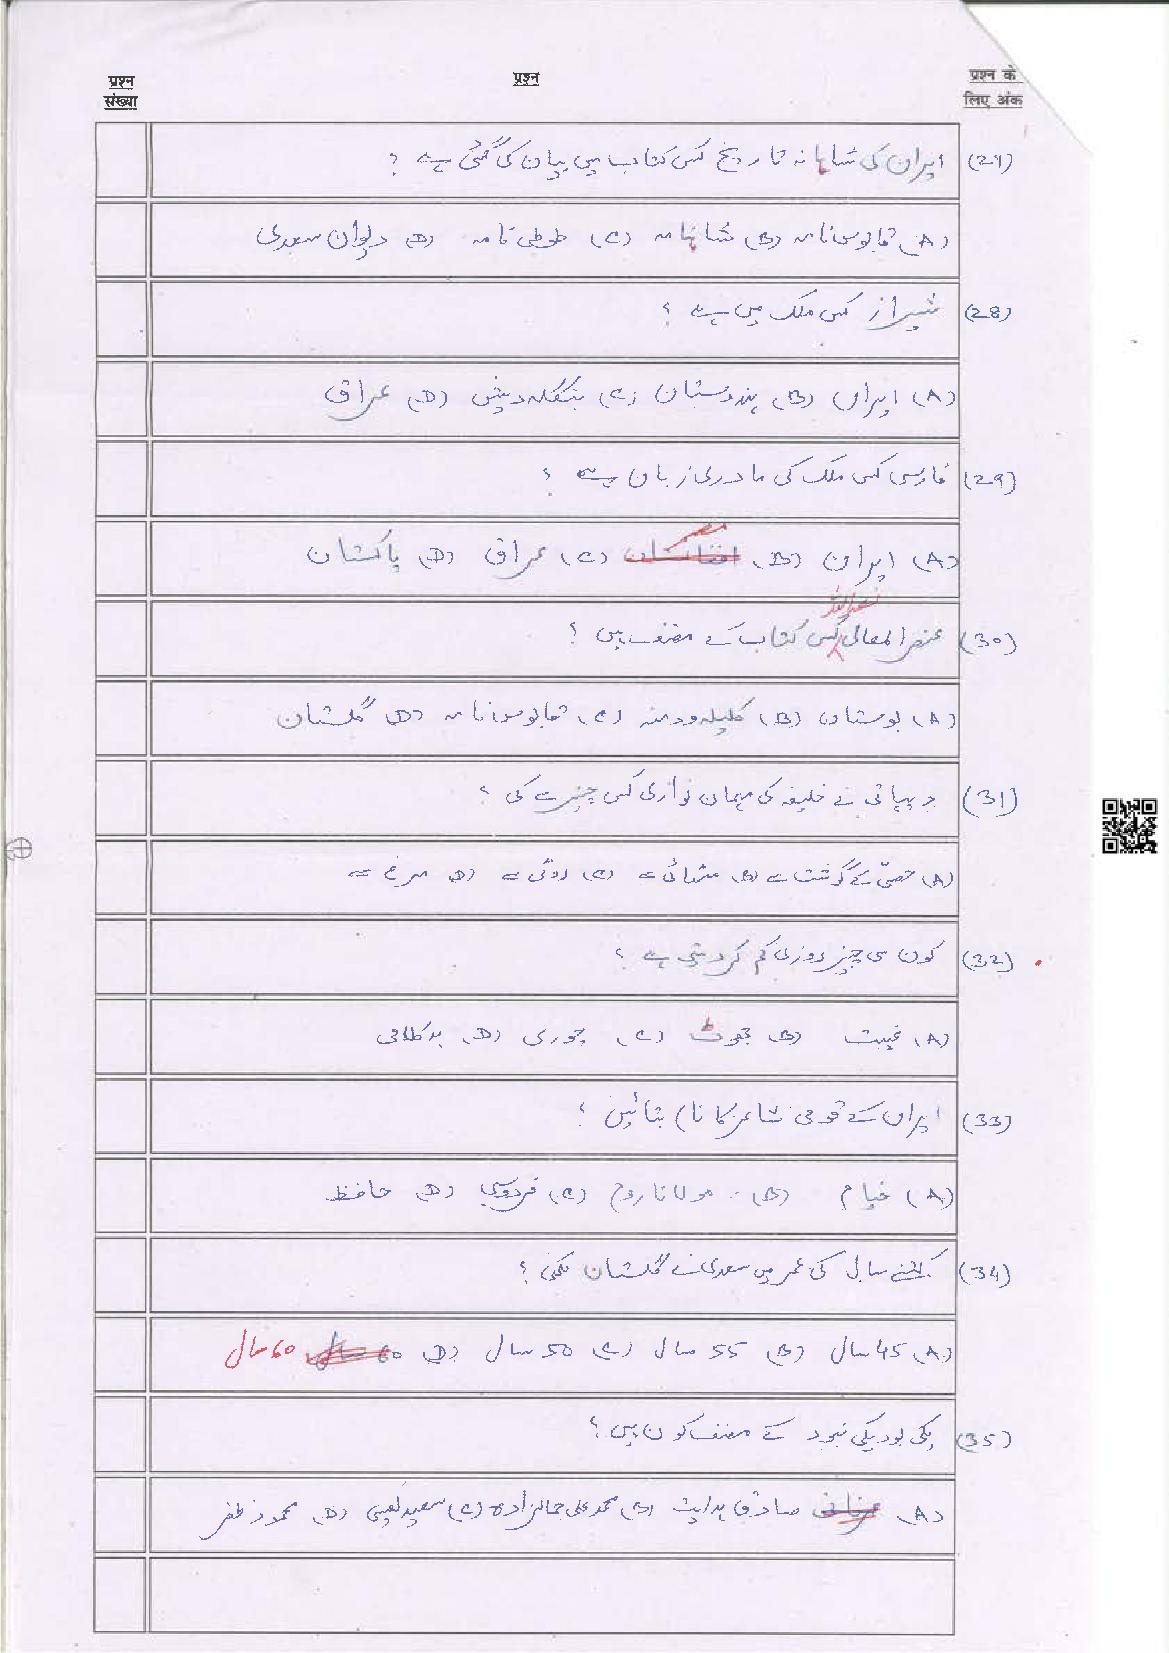 प्रश्न संख्या
प्रश्न
प्रश्न के लिए अंक
(27) ایران کی شاہانہ تاریخ کس کتاب میں بیان کی گئی ہے ؟
(A) قابوس نامہ (B) شاہنامہ (C) طوطی نامہ (D) دیوان سعدی
(28) شیراز کس ملک میں ہے ؟
(A) ایران (B) ہندوستان (C) بنگلہ دیش (D) عراق
(29) فارسی کس ملک کی مادری زبان ہے ؟
(A) ایران (B) مصر (C) عراق (D) پاکستان
(30) عنصر المعالی کس کتاب کے مصنف ہیں ؟
(A) بوستان (B) کلیلہ و دمنہ (C) قابوس نامہ (D) گلستان
(31) دیہاتی نے خلیفہ کی مہمان نوازی کس چیز سے کی ؟
(A) کے گوشت سے (B) مٹھائی سے (C) روٹی سے (D) مرغ سے
(32) کون سی چیز روزی کم کر دیتی ہے ؟
(A) غیبت (B) جھوٹ (C) چوری (D) بدکلامی
(33) ایران کے قومی شاعر کا نام بتائیں ؟
(A) خیام (B) مولانا روم (C) فردوسی (D) حافظ
(34) کتنے سال کی عمر میں سعدی نے گلستان لکھی ؟
(A) 45 سال (B) 55 سال (C) 50 سال (D) 60 سال
(35) یکی بود یکی نبود کے مصنف کون ہیں ؟
(A) صادق ہدایت (B) محمد علی جمالزادہ (C) سعید نفیسی (D) محمود ظفر